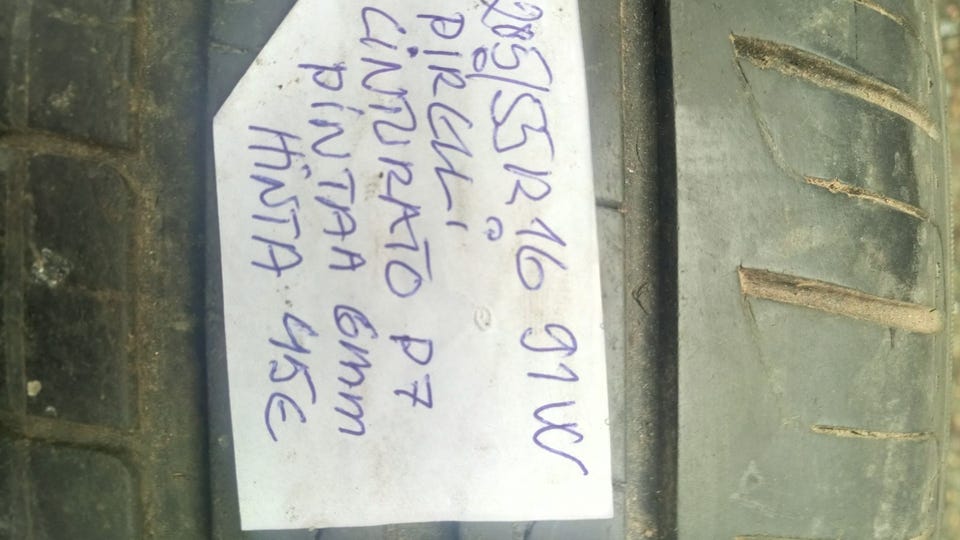 205/55R16 91W
PIRELLI
CINTURATO P7
PINTAA 6mm
HINTA 45€